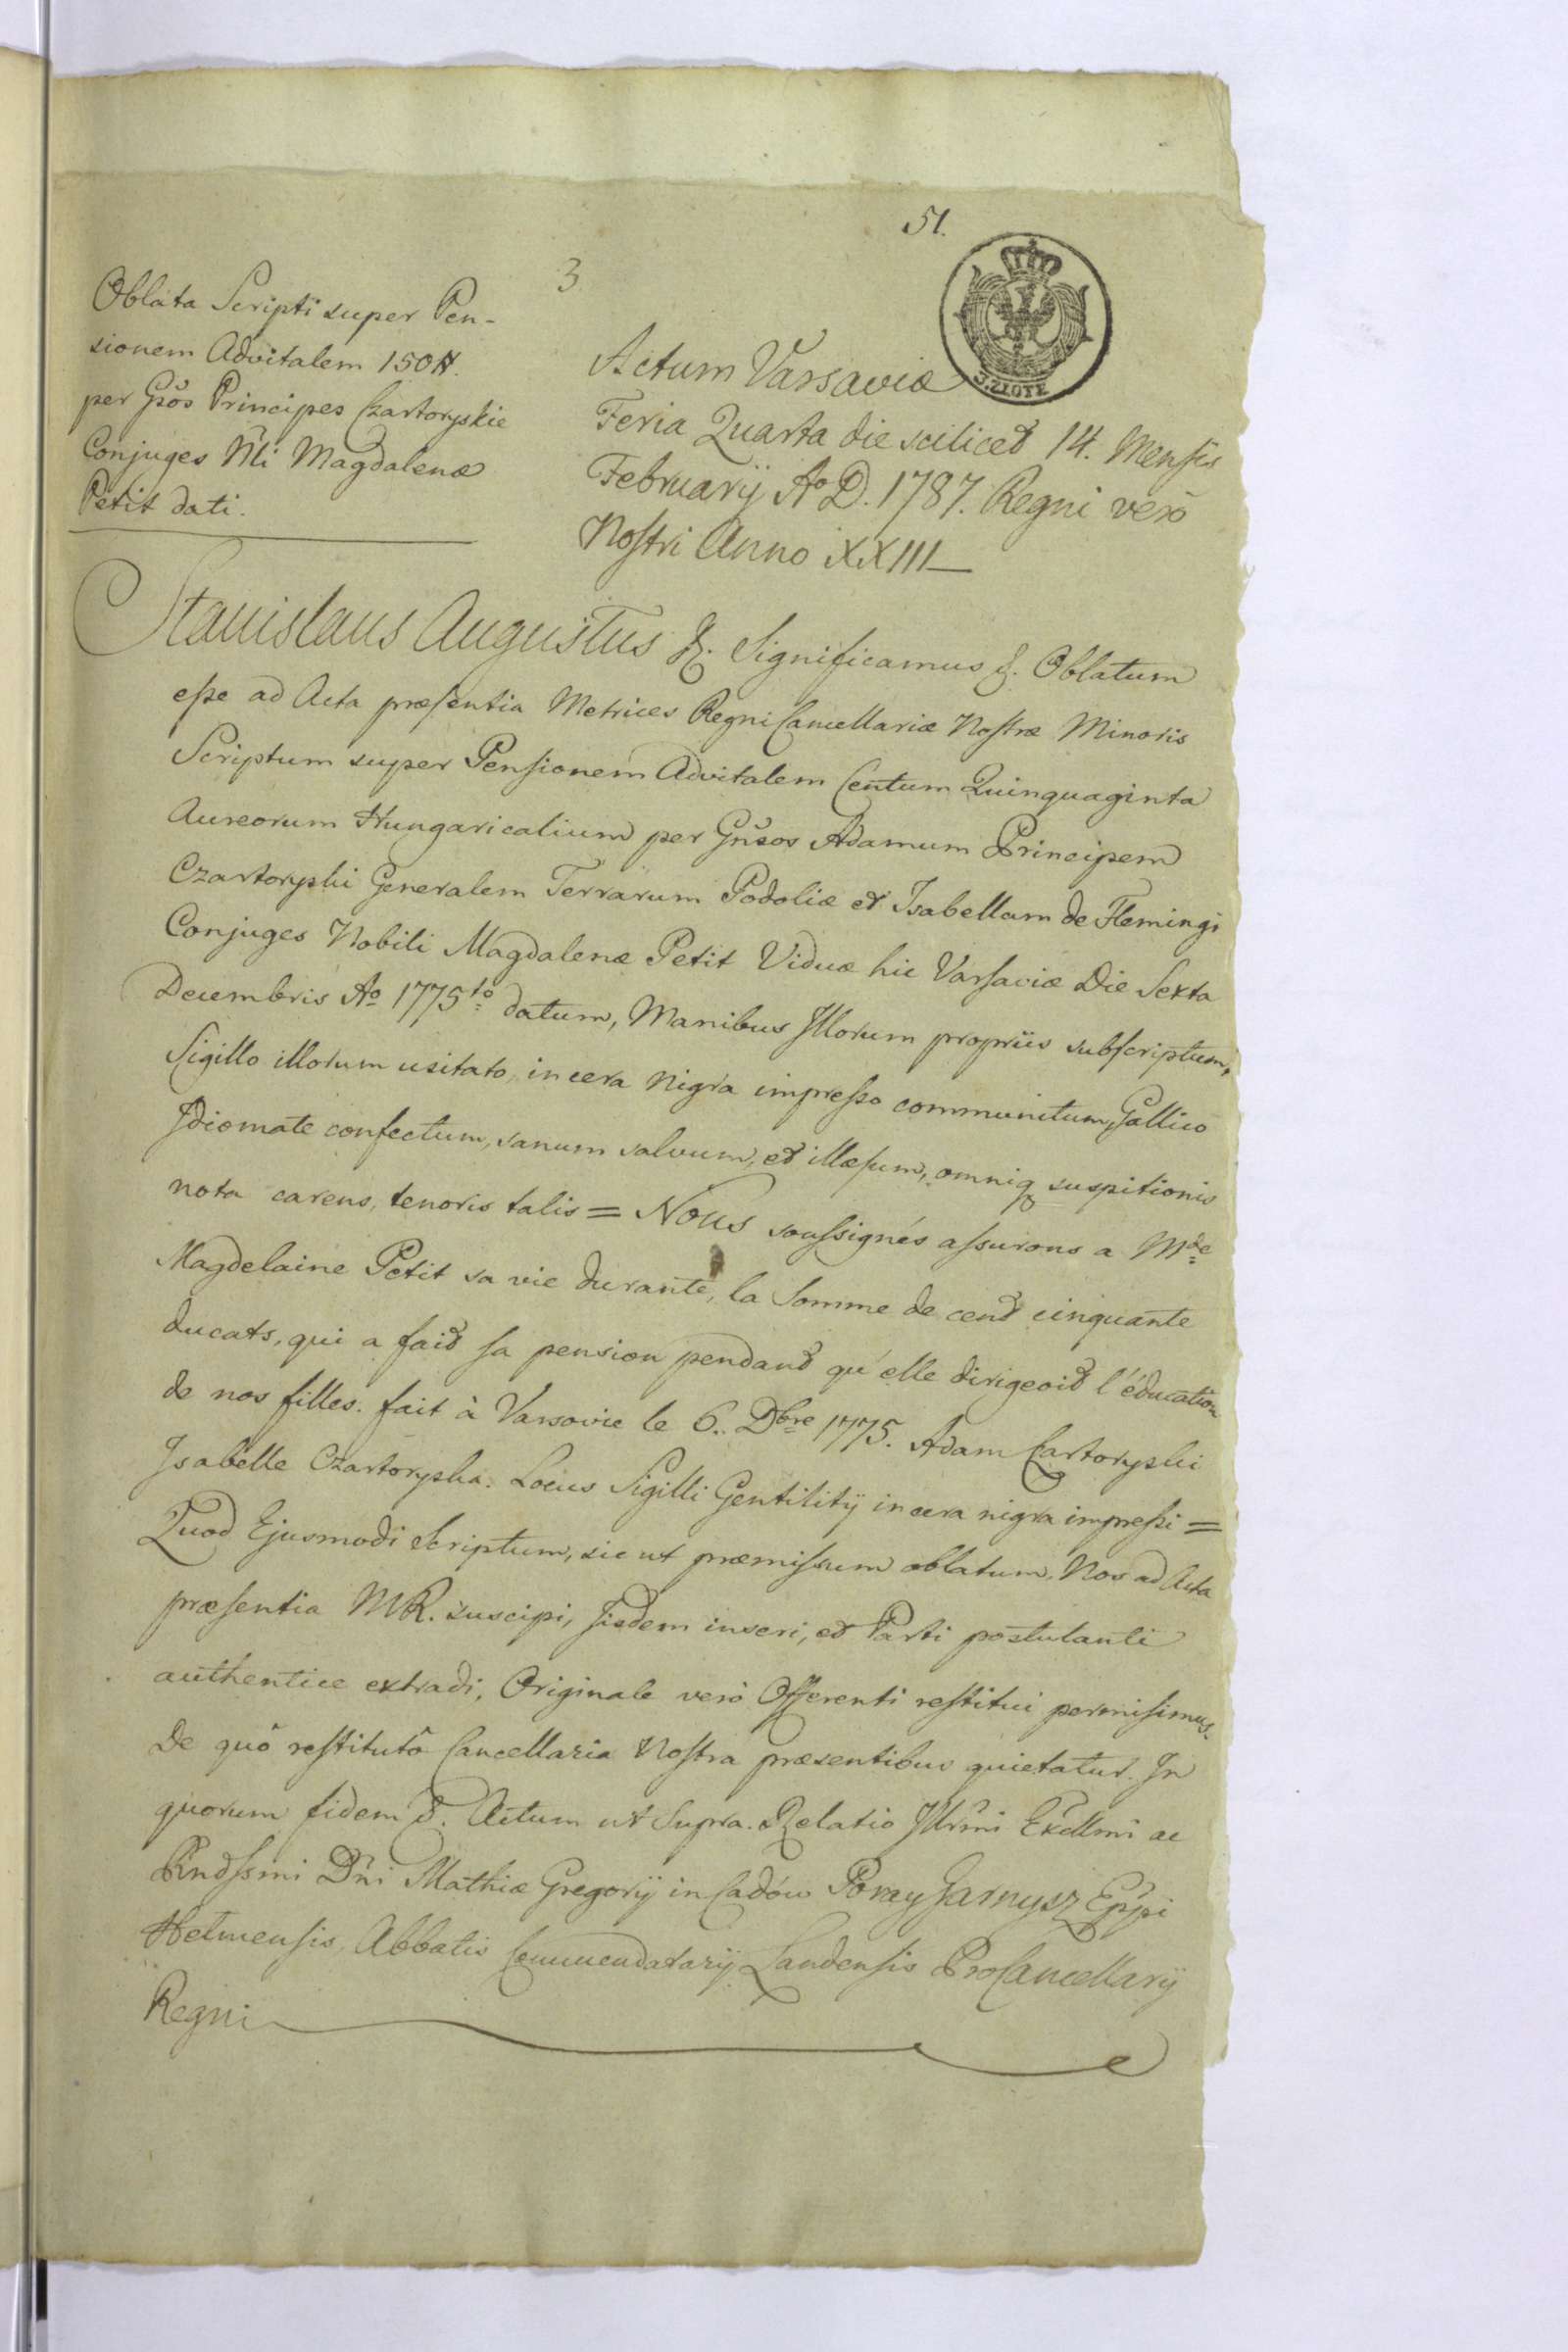 51.
3
3.ZŁOTE
Oblata Scripti super Pen-
sionem Advitalem 150 #.
per Gños Principes Czartoryskie
Conjuges Nli Magdalenæ
Petit dati.
Actum Varsaviæ
Feria Quarta die scilicet 14. Mensis
Februarÿ Ao D. 1787. Regni verò
Nostri Anno XXIII
Stanislaus Augustus &. Significamus &. Oblatum
esse ad Acta præsentia Metrices Regni Cancellariæ Nostræ Minoris
Scriptum super Pensionem Advitalem Centum Quinquaginta
Aureorum Hungaricalium per Gñsos Adamum Principem
Czartoryski Generalem Terrarum Podoliæ et Isabellam de Flemingi
Conjuges Nobili Magdalenæ Petit Viduæ hic Varsaviæ Die Sexta
Decembris Ao 1775to datum, Manibus Illorum propriis subscriptum,
Sigillo illorum usitato, in cera nigra impresso communitum, Gallico
Idiomate confectum, sanum salvum, et illæsum, omniq suspitionis
nota carens, tenoris talis = Nous soussignés assurons a Mde
Magdelaine Petit sa vie durante, la Somme de cent cinquante
ducats, qui a fait sa pension pendant qu'elle dirigeoit l'éducation
de nos filles. fait à Varsovie le 6. Dbre 1775. Adam Czartoryski
Isabelle Czartoryska. Locus Sigilli Gentilitÿ in cera nigra impressi =
Quod Ejusmodi Scriptum, sic ut præmissum oblatum, Nos ad Acta
præsentia MR. suscipi, Iisdem inseri, et Parti postulanti
authentice extradi, Originale verò Offerenti restitui permisimus.
De quô restitutô Cancellaria Nostra præsentibus quietatur. In
quorum fidem &. Actum ut Supra. Relatio Illrmi Excllmi ac
Rndssmi Dñi Mathiæ Gregorÿ in Cadów Poray Garnysz Eppi
Helmensis, Abbatis Commendatarÿ Landensis ProCancellarÿ
Regni